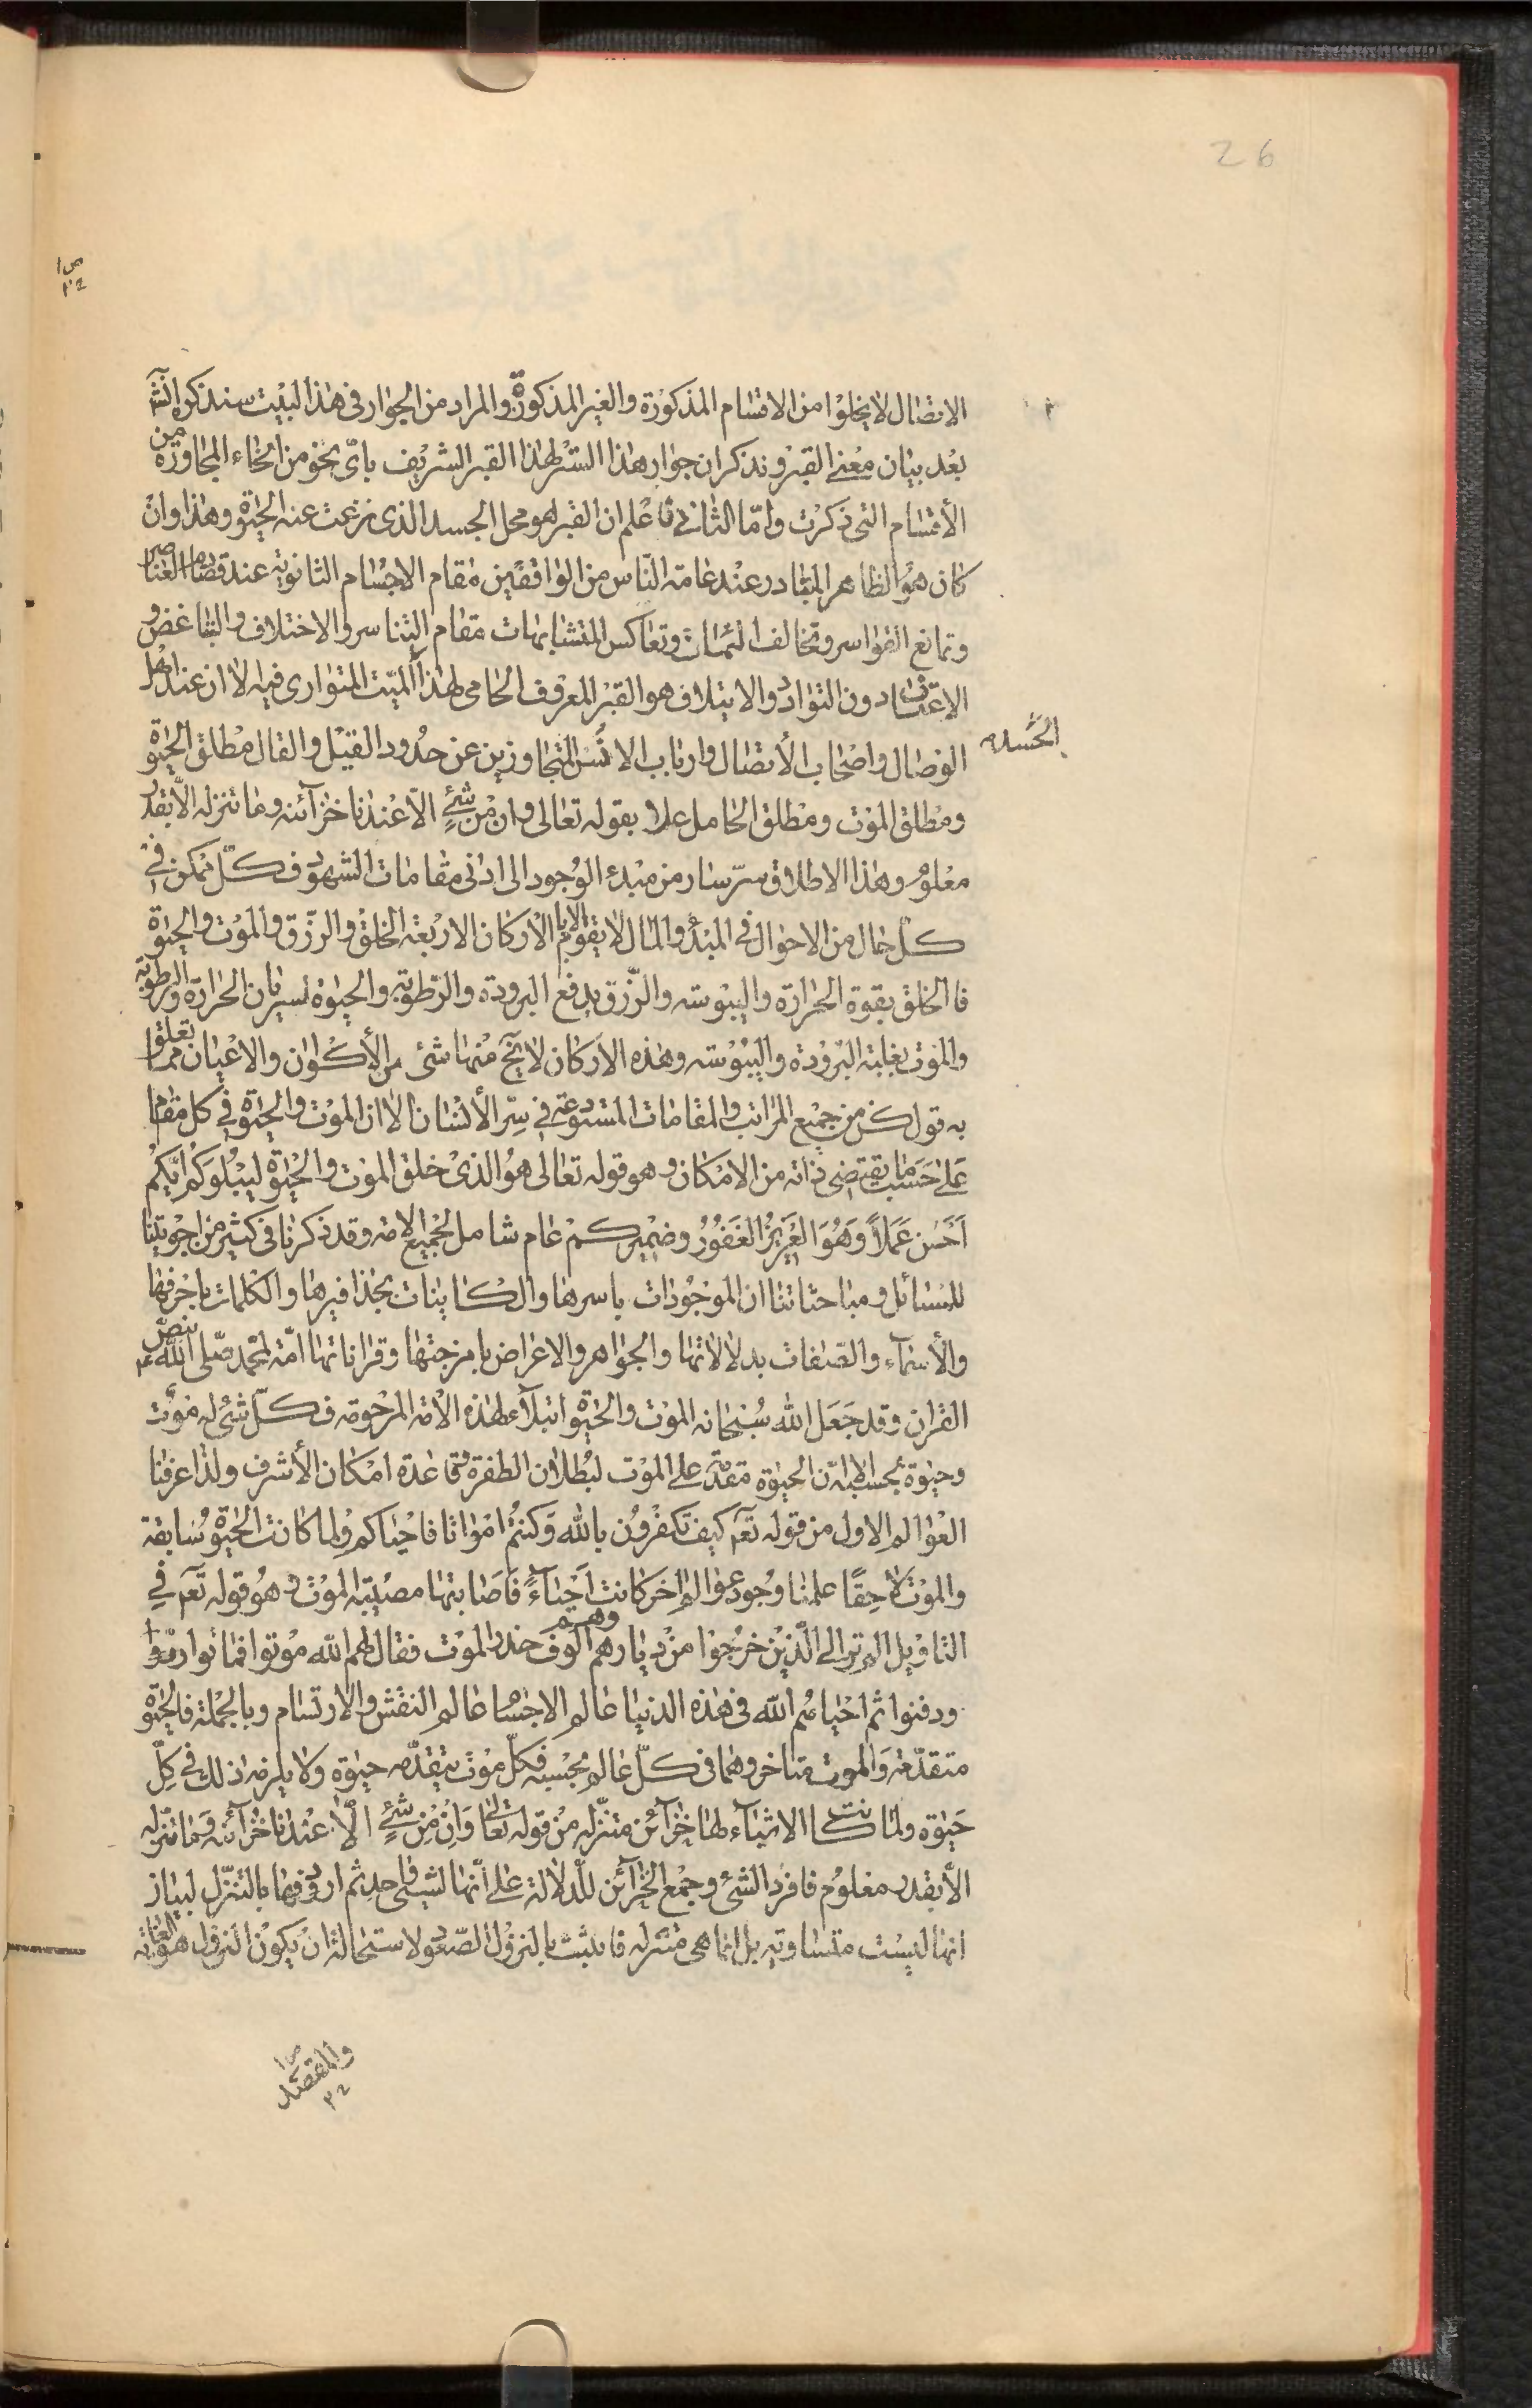 26
الاتصال لا يخلوا من الاقسام المذكورة والغير المذكورة والمراد من الجوار فى هذا البيت سنذكره انشآ
بعد بيان معنى القبر ونذكر ان جوار هذا الستر لهذا القبر الشريف باىّ نحو من انحاء المجاورة من
الأقسام التى ذكرت وامّا الثانى فاعلم ان القبر هو محل الجسد الذى نزعت عنه الحيوة وهذا وان
كان هو الظاهر المتبادر عند عامة النّاس من الواقفين مقام الاجسام الثانوية عند تصادم العناصر
وتمانع القواسر وتخالف السمات وتعاكس المتشابهات مقام التناسر والاختلاف والتباغض و
الاعتساف دون التوادد والايتلاف هو القبر المعروف الحامى لهذا الميّت المتوارى فيه الا ان عند اهل
الوصال واصحاب الأتصال وارباب الانس المتجاوزين عن حدود القيل والقال مطلق الحيوة
الجسد
ومطلق الموت ومطلق الحامل عملا بقوله تعالى وان من شئٍ الاّ عندنا خزآئنه وما ننزله الاّ بقدر
معلوم وهذا الاطلاق سرّ سار من مبدء الوجود الى ادنى مقامات الشهود فكلّ ممكن فى
كلّ حال من الاحوال فى المبدء والمآل لا يقوم الا بالأركان الاربعة الخلق والرّزق والموت والحيوة
فالخلق بقوة الحرارة واليبوسة والرّزق بدفع البرودة والرّطوبة والحيوة لسريان الحرارة والرطوبة
والموت بغلبة البرودة واليبوسة وهذه الاركان لا ينج منها شئ من الأكوان والاعيان مما تعلق
به قول كن من جميع المراتب والمقامات المستودعة فى سرّ الأنسان الا ان الموت والحيوة فى كل مقام
على حسب ما يقتضى ذاته من الامكان وهو قوله تعالى هو الذى خلق الموت والحيوة ليبلوكم ايكم
احسن عملاً وهو العزيز الغفور وضمير كم عام شامل لجميع الامة وقد ذكرنا فى كثير من اجوبتنا
للمسائل ومباحثاتنا ان الموجودات باسرها والكاينات بحذافيرها والكلمات باحرفها
والأسمآء والصّفات بدلالاتها والجواهر والاعراض بامزجتها وقراناتها امّة لمحمد صلّى الله عليه بنصّ
القران وقد جعل الله سبحانه الموت والحيوة ابتلآء لهذه الأمة المرحومة فكلّ شئ له موت
وحيوة بحسبه الا انّ الحيوة مقدمة على الموت لبطلان الطفرة وقاعدة امكان الأشرف ولذا عرفنا
العوالم الاول من قوله تعۤ كيف تكفرون بالله وكنتم امواتا فاحياكم ولما كانت الحيوة سابقة
والموت لاحقًا علمنا وجود عوالم اخر كانت احيآءً فاصابتها مصيبة الموت وهو قوله تعۤ فى
التاويل الم تر الى الّذين خرجوا من ديارهم وهم الوف حذر الموت فقال لهم الله موتوا فماتوا
ودفنوا ثم احياهم الله فى هذه الدنيا عالم الاجسام عالم النقش والارتسام وبالجملة فالحيوة
متقدّمة والموت متاخر وهما فى كلّ عالم بحسبه فكلّ موت يتقدّمه حيوة ولا يلزمه ذلك فى كلّ
حيوة ولما كانت الاشيآء لها خزآئن متنزّله من قوله تعالى وان من شئٍ الاّ عندنا خزآئنه وما ننزله
الاّ بقدر معلوم فافرد الشئ وجمع الخزآئن للّدلالة على انّها لشيئ واحد ثم اردفها بالتنزّل لبيان
انها ليست متساوية بل انما هى متنزله فاثبت بالنزول الصّعود لاستحالة ان يكون النزول هو الغاية
والمقصد